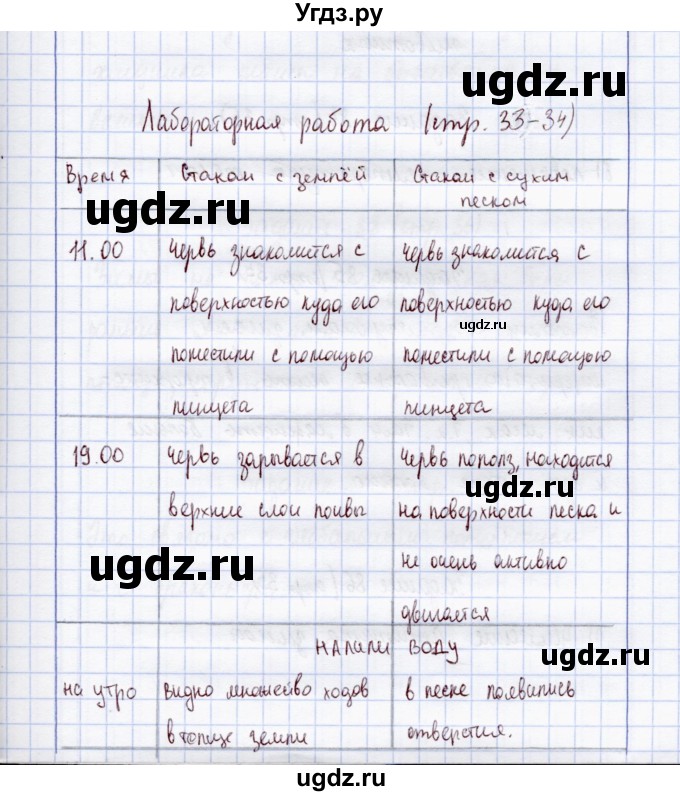 Угдз.ру
ugdz.ru
Лабораторная работа (стр. 33-34)
Время Стакан с землёй Стакан с сухим
песком
ugdz.ru
11.00 Червь знакомится с Червь знакомится с
поверхностью куда его поверхностью куда его
ugdz.ru
поместили с помощью поместили с помощью
пинцета пинцета
19.00 Червь зарывается в Червь пополз, находится
ugdz.ru
верхние слои почвы на поверхности песка и
ugdz.ru
не очень активно
двигается
НАЛИЛИ ВОДУ
ugdz.ru
на утро Видно множество ходов в песке появились
в толще земли отверстия.
ugdz.ru